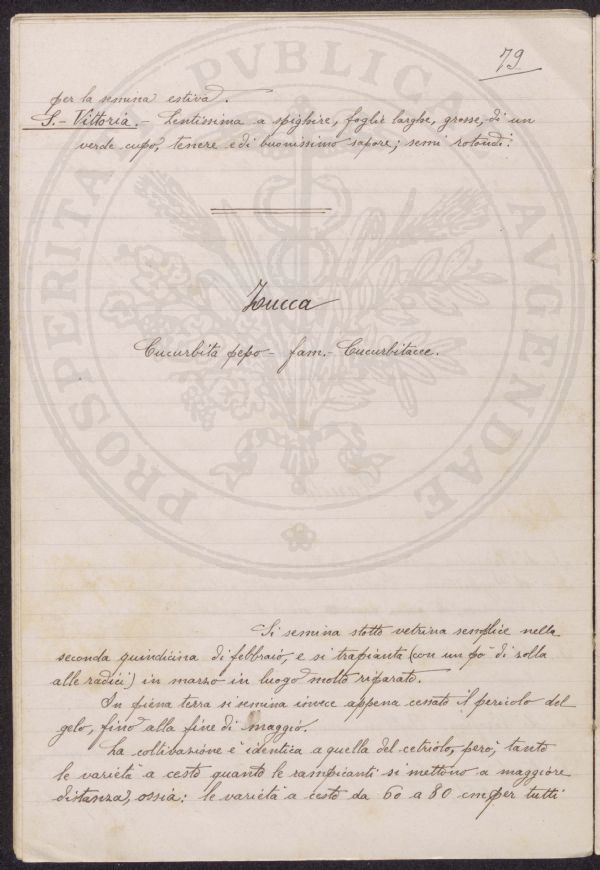 79
per la semina estiva.
S. - Vittoria. - Lentissima a spighire, foglie larghe, grosse, di un
verde cupo, tenere e di buonissimo sapore; semi rotondi.
Zucca
Cucurbita pepo - fam. - Cucurbitacee.
Si semina stotto vetrina semplice nella
seconda quindicina di febbraio, e si trapianta (con un po' di zolla
alle radici) in marzo in luogo molto riparato.
In piena terra si semina invece appena cessato il pericolo del
gelo, fino alla fine di maggio.
La coltivazione è identica a quella del cetriolo, però, tanto
le varietà a cesto quanto le rampicanti si mettono a maggiore
distanza, ossia: le varietà a cesto da 60 a 80 cm per tutti
PROSPERITATI PVBLICAE AVGENDAE